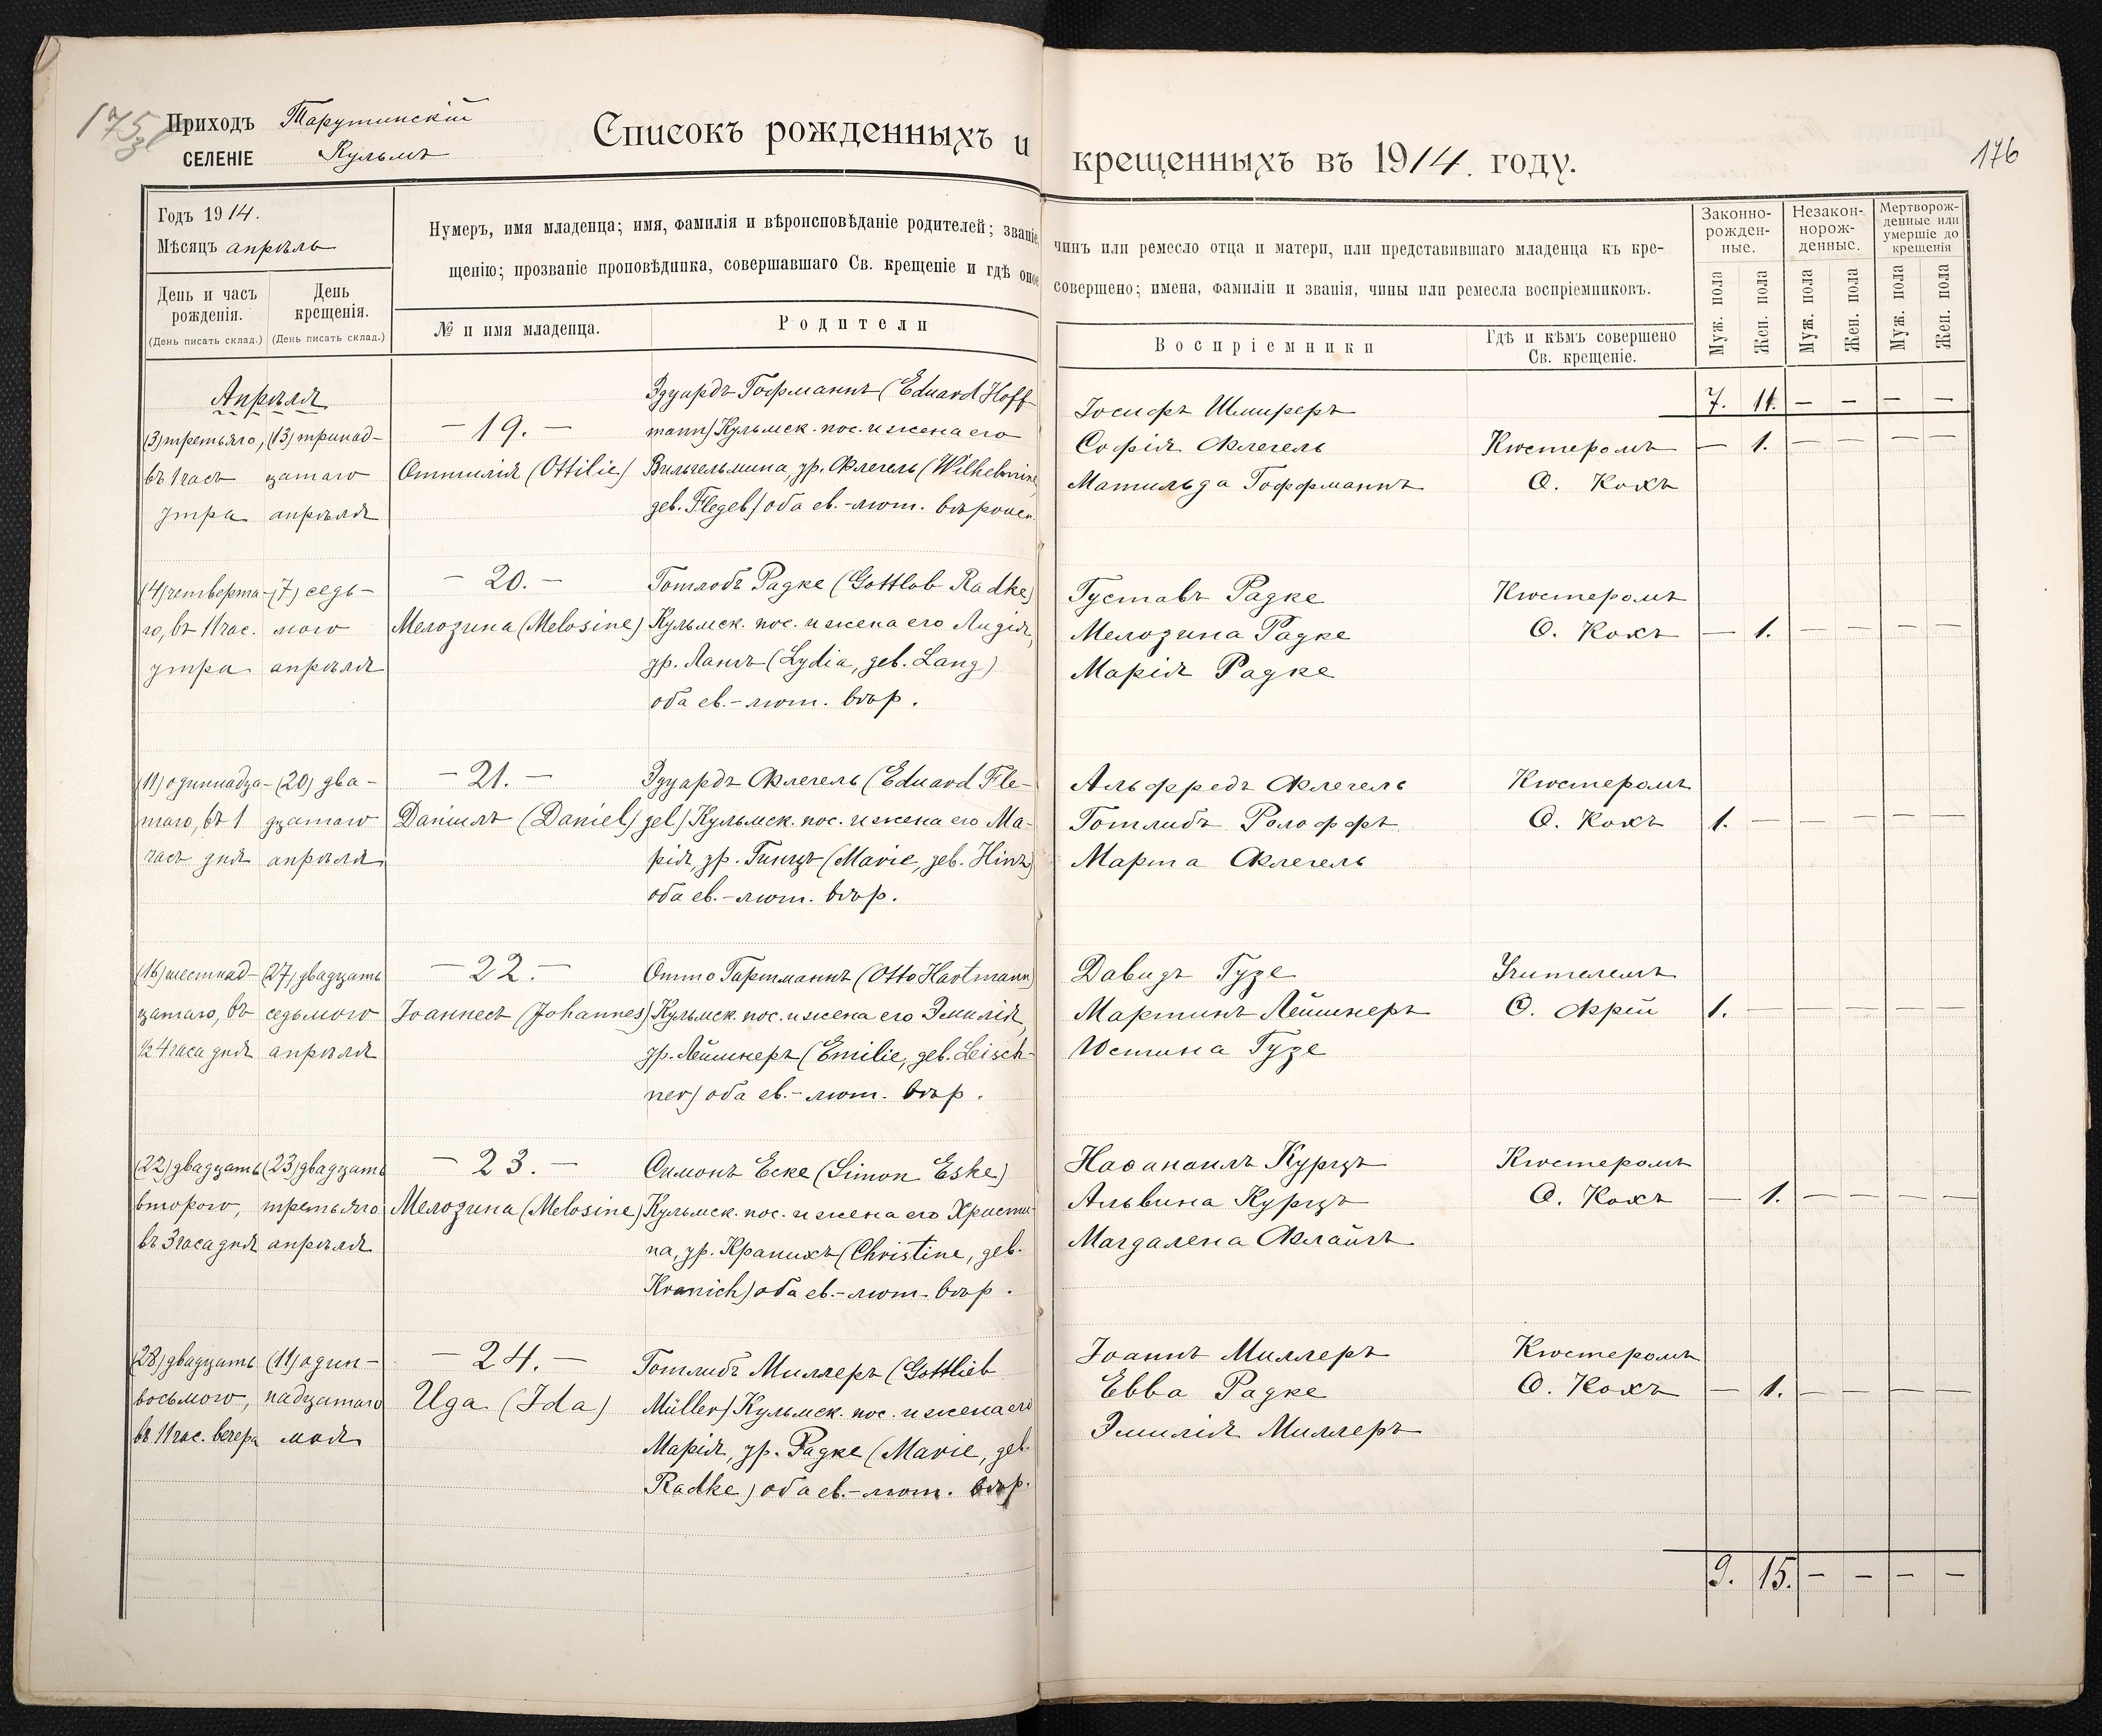 175
176
Приходъ Тарутинскій
СЕЛЕНІЕ Кульмъ
Списокъ рожденныхъ и крещенныхъ въ 1914. году.
Годъ 1914.
Мѣсяцъ апрѣль
День и часъ рожденія.
(День писать склад.)
День крещенія.
(День писать склад.)
Нумеръ, имя младенца; имя, фамилія и вѣроисповѣданіе родителей; званіе, чинъ или ремесло отца и матери, или представившаго младенца къ кре-
щенію; прозваніе проповѣдника, совершавшаго Св. крещеніе и гдѣ оное совершено; имена, фамиліи и званія, чины или ремесла воспріемниковъ.
№ и имя младенца.
Родители
Воспріемники
Гдѣ и кѣмъ совершено Св. крещеніе.
Законно-
рожден-
ные.
Незакон-
норож-
денные.
Мертворож-
денные или
умершіе до
крещенія
Муж. пола
Жен. пола
Муж. пола
Жен. пола
Муж. пола
Жен. пола
7. 11. — — — —
Апрѣля
(3) третьяго,
въ 1 часъ
утра
(13) тринад-
цатаго
апрѣля
— 19. —
Оттилія (Ottilie)
Эдуардъ Гофманнъ (Eduard Hoff-
mann) Кульмск. пос. и жена его
Вильгельмина, ур. Флегель (Wilhelmine,
geb. Flegel) оба ев.-лют. вѣроисп.
Іосифъ Шмиреръ
Софія Флегель
Матильда Гоффманнъ
Кюстеромъ
О. Кохъ
— 1. — — — —
(4) четверта-
го, въ 11 час.
утра
(7) седь-
мого
апрѣля
— 20. —
Мелозина (Melosine)
Готлобъ Радке (Gottlob Radke)
Кульмск. пос. и жена его Лидія,
ур. Лангъ (Lydia, geb. Lang)
оба ев.-лют. вѣр.
Густавъ Радке
Мелозина Радке
Марія Радке
Кюстеромъ
О. Кохъ
— 1. — — — —
(11) одиннадца-
таго, въ 1
часъ дня
(20) два-
дцатаго
апрѣля
— 21. —
Даніилъ (Daniel)
Эдуардъ Флегель (Eduard Fle-
gel) Кульмск. пос. и жена его Ма-
рія, ур. Гинцъ (Marie, geb. Hinz)
оба ев.-лют. вѣр.
Альфредъ Флегель
ГотлибъРолоффъ
Марта Флегель
Кюстеромъ
О. Кохъ
1. — — — — —
(16) шестнад-
цатаго, въ
½ 4 часа дня
(27) двадцать
седьмого
апрѣля
— 22. —
Іоаннесъ (Johannes)
Отто Гартманнъ (Otto Hartmann)
Кульмск. пос. и жена его Эмилія,
ур. Лейшнеръ (Emilie, geb. Leisch-
ner) оба ев.-лют. вѣр.
Давидъ Гузе
Мартинъ Лейшнеръ
Юстина Гузе
Учителемъ
О. Фрей
1. — — — — —
(22) двадцать
второго,
въ 3 часа дня
(23) двадцать
третьяго
апрѣля
— 23. —
Мелозина (Melosine)
Симонъ Еске (Simon Eske)
Кульмск. пос. и жена его Христи-
на, ур. Кранихъ (Christine, geb.
Kranich) оба ев.-лют. вѣр.
Наѳанаилъ Курцъ
Альвина Курцъ
Магдалена Флайгъ
Кюстеромъ
О. Кохъ
— 1. — — — —
(28) двадцать
восьмого,
въ 11 час. вечера
(11) один-
надцатаго
мая
— 24. —
Ида (Ida)
Готлибъ Миллеръ (Gottlieb
Müller) Кульмск. пос. и жена его
Марія, ур. Радке (Marie, geb.
Radke) оба ев.-лют. вѣр.
Іоаннъ Миллеръ
Евва Радке
Эмилія Миллеръ
Кюстеромъ
О. Кохъ
— 1. — — — —
9. 15. — — — —